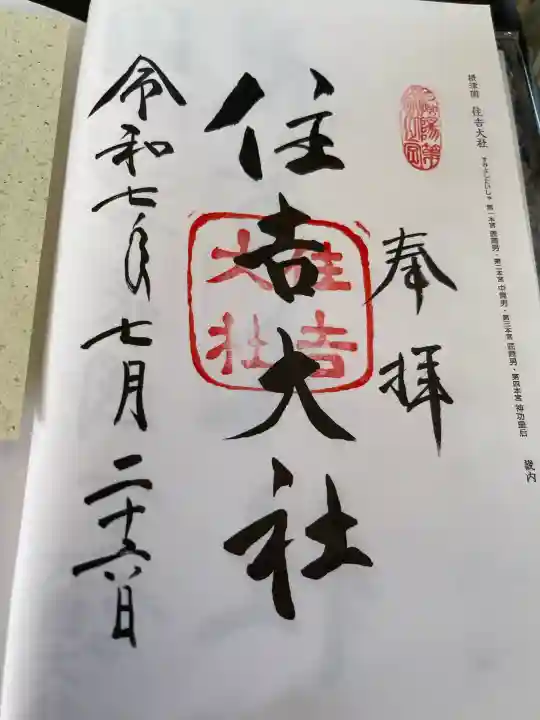 摂津國 住吉大社 すみよしたいしゃ 第一本宮 底筒男・第二本宮 中筒男・第三本宮 表筒男・第四本宮 神功皇后 畿内
奉拝
住吉大社
住吉
大社
令和七年七月二十六日